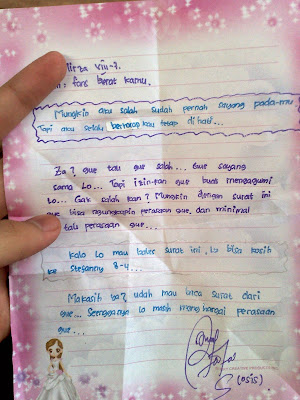 Mirza VIII-2.
: fans berat kamu.
Mungkin aku salah sudah pernah sayang pada-mu
Tapi aku selalu berharap kau tetap di hati...
Za? gue tau gue salah... Gue sayang
sama Lo... Tapi izin-kan gue buat mengagumi
Lo... Gak salah kan? Mungkin dengan surat ini
gue bisa ngungkapin perasaan gue, dan minimal
tau perasaan gue...
Kalo Lo mau bales surat ini, Lo bisa kasih
ke Stefanny 8-4...
Makasih ya? udah mau baca surat dari
gue... Seenggaknya Lo masih menghargai perasaan
gue...
CREATIVE PRODUCTION
(OSIS).